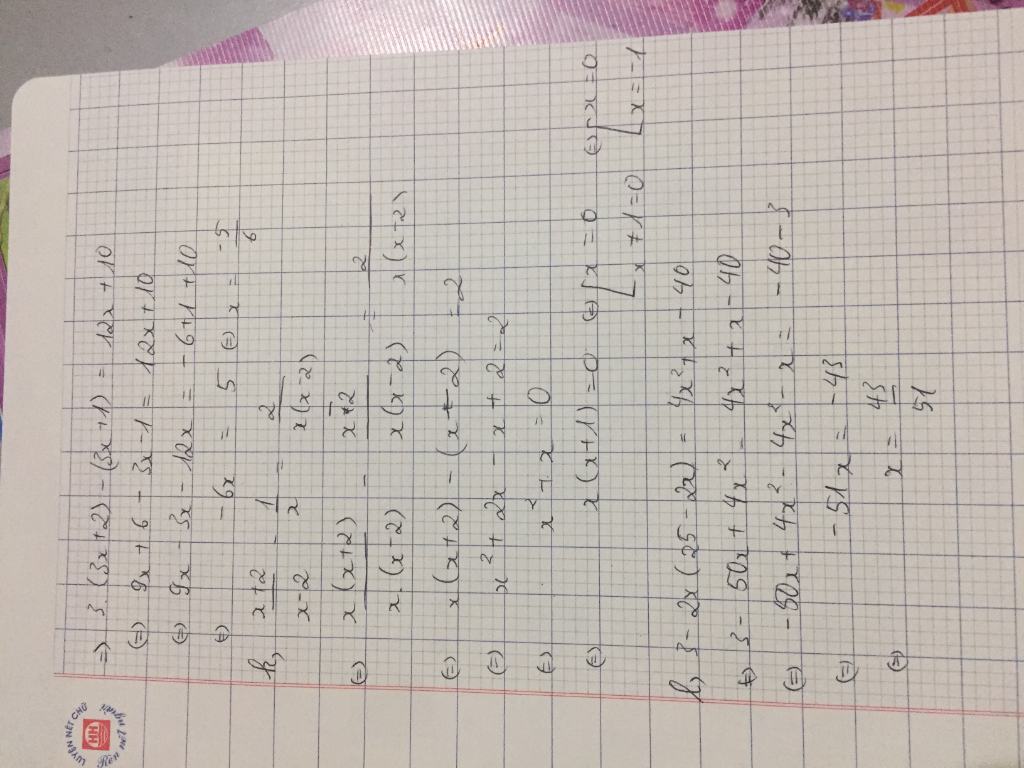 LUYỆN NÉT CHỮ
HH
Rèn nết người
=> 3(3x+2) - (3x+1) = 12x+10
(=) 9x + 6 - 3x - 1 = 12x + 10
(=) 9x - 3x - 12x = -6+1+10
(=) -6x = 5 (=) x = -5/6
k, (x+2)/(x-2) - 1/x = 2/(x(x-2))
(=) x(x+2)/(x.(x-2)) - (x-2)/(x(x-2)) = 2/(x(x-2))
(=) x(x+2) - (x-2) = 2
(=) x² + 2x - x + 2 = 2
(=) x² + x = 0
(=) x(x+1) = 0 (=) [x = 0 (=) [x = 0
[x + 1 = 0 [x = -1
l, 3 - 2x(25 - 2x) = 4x² + x - 40
(=) 3 - 50x + 4x² = 4x² + x - 40
(=) -50x + 4x² - 4x² - x = -40 - 3
(=) -51x = -43
(=) x = 43/51